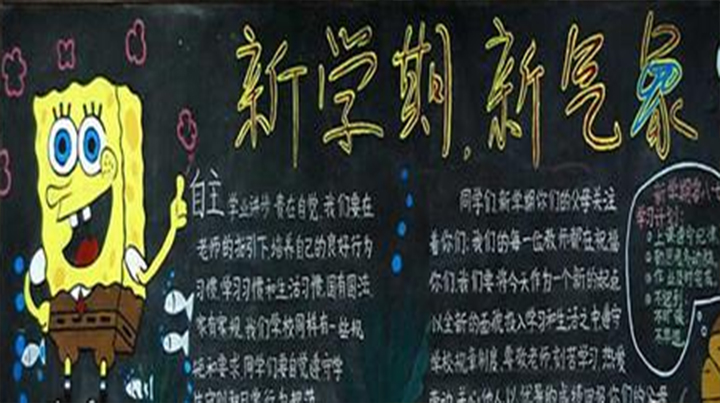 新学期,新气象
自主 学业进步贵在自觉,我们要在
老师的指引下,培养自己的良好行为
习惯,学习习惯和生活习惯,国有国法,
家有家规,我们学校同样有一些规
范和要求,同学们要自觉遵守学
同学们,新学期你们的父母关注
着你们;我们的每一位教师都在祝福
你们,我们要将今天作为一个新的起点
以全新的面貌投入学习和生活之中遵守
学校规章制度,尊敬老师,刻苦学习,热爱
新学期
学习计划:
上课遵守纪律
不迟到
不早退